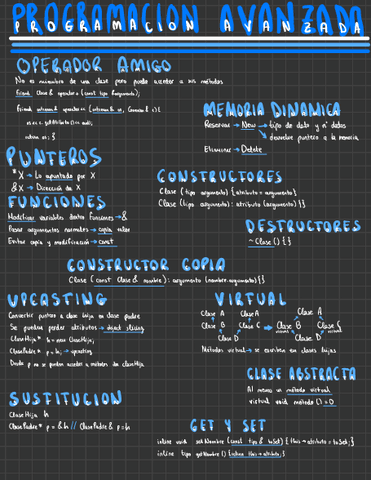 PROGRAMACION AVANZADA
OPERADOR AMIGO
No es miembro de una clase pero puede acceder a sus métodos
friend Clase & operator+ (const tipo &argumento);
friend ostream & operator<< (ostream & os, const &
os <<
return os; }
MEMORIA DINAMICA
Reservar → New → tipo de dato y nº datos
devuelve puntero a la memoria
Eliminar → Delete
PUNTEROS
*X → Lo apuntado por X
&X → Dirección de X
CONSTRUCTORES
Clase (tipo argumento) {atributo = argumento}
Clase (tipo argumento): atributo (argumento){}
FUNCIONES
Modificar variables dentro funciones → &
Pasar argumentos normales → copia valor
Evitar copia y modificación → const
DESTRUCTORES
~Clase () {}
CONSTRUCTOR COPIA
Clase (const Clase & nombre): argumento (nombre.argumento){}
UPCASTING
Convertir puntero a clase hija en clase padre
Se pueden perder atributos → object slicing
ClaseHija * h = new ClaseHija;
ClasePadre * p = h; → upcasting
Desde p no se pueden acceder a métodos de claseHija
VIRTUAL
Clase A Clase A Clase A
Clase B Clase C → Clase B Clase C
virtual virtual
Clase D Clase D
Métodos virtual → se escriben en clases hijas
CLASE ABSTRACTA
Al menos un método virtual
virtual void método () = 0
SUSTITUCION
ClaseHija h
ClasePadre * p = & h // ClasePadre & p = h
GET Y SET
inline void setNombre (const tipo & toSet) { this → atributo = toSet; }
inline tipo getNombre () { return this → atributo; }